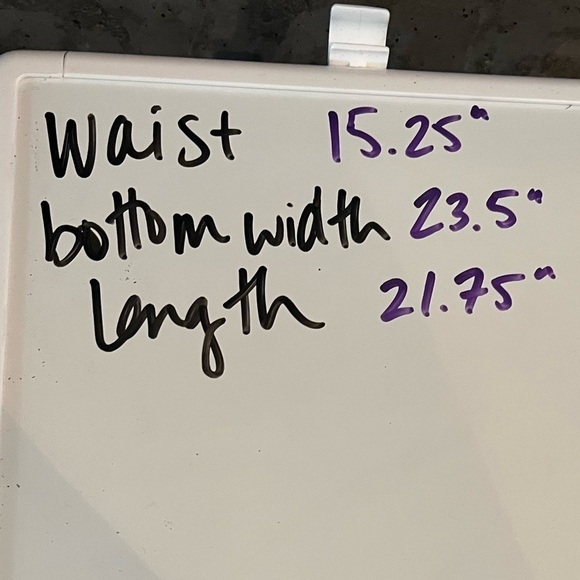 Waist 15.25"
bottom width 23.5"
Length 21.75"